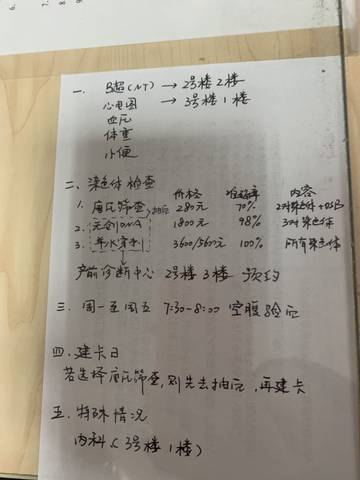 一. B超(NT) → 2号楼2楼
心电图 → 3号楼1楼
血压
体重
小便
二、染色体检查 价格 准确率 内容
1. 唐氏筛查 抽血 280元 70% 2对染色体+
2. 无创DNA 1800元 98% 3对染色体
3. 羊水穿刺 3600/5600元 100% 所有染色体
产前诊断中心 2号楼3楼 预约
三、周一至周五 7:30-8:00 空腹验血
四.建卡日
若选择唐氏筛查,则先去抽血,再建卡
五.特殊情况
内科(3号楼1楼)